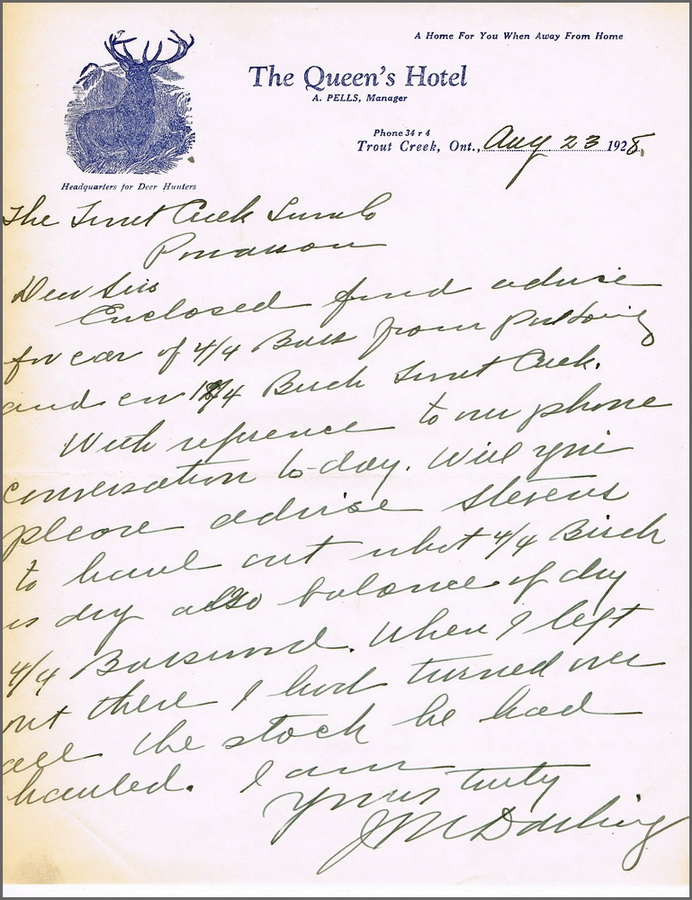 A Home For You When Away From Home
The Queen's Hotel
A. PELLS, Manager
Phone 34 r 4
Trout Creek, Ont., Aug 23 1928.
Headquarters for Deer Hunters
The Trout Creek Lumb
Powassan
Dear Sirs
Enclosed find advise
for car of 4/4 Bass from
and car 4 Birch Trout Creek.
With reference to our phone
conversation to-day. Will you
please advise Stevens
to haul out what 4/4 Birch
is dry also balance of dry
4/4 Basswood. When I left
out there I had turned over
all the stock he had
hauled. I am
Yours truly
J M Darling